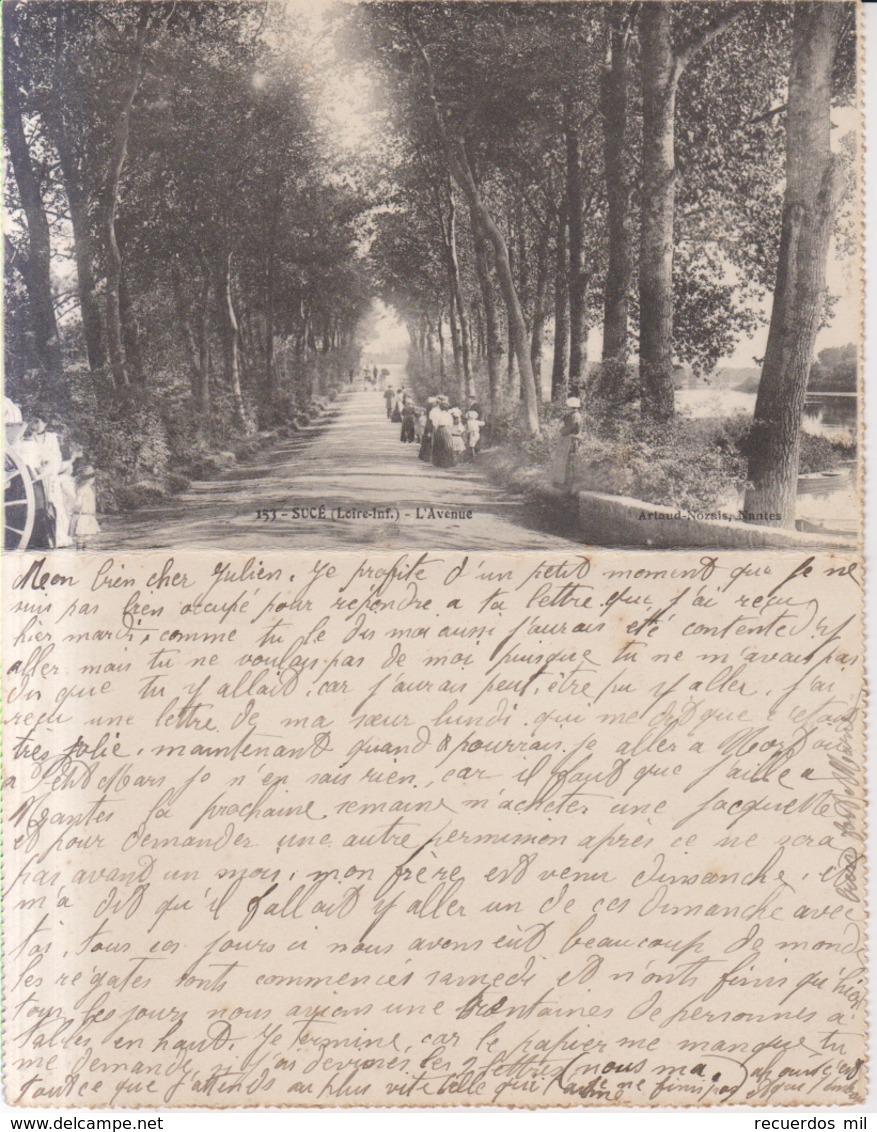 153 - SUCÉ (Loire-Inf.) - L'Avenue
Artaud-Nozais, Nantes
Mon bien cher Julien, Je profite d'un petit moment que je ne
suis pas bien ocupé pour répondre a ta lettre que j'ai reçu
hier mardi, comme tu le dis moi aussi j'aurais été contente d'y
aller mais tu ne voulais pas de moi puisque tu ne m'avais pas
dis que tu y allait, car j'aurais peut, être pu y aller, j'ai
reçu une lettre de ma sœur lundi qui me dit que c'etait
très jolie, maintenant quand pourrais je aller a Mort ou
a Petit Mars je n'en sais rien, car il faut que j'aille a
Nantes la prochaine semaine m'acheter une jacquette
et pour demander une autre permission après ce ne sera
pas avant un mois, mon frère est venu dimanche, et
m'a dit qu'il fallait y aller un de ces dimanche avec
toi, tous ces jours ci nous avons eût beaucoup de monde
les régates sont commencés samedi et n'ont finis qu'hier
tous les jours nous avions une trentaines de personnes à
tables en haut. Je termine, car le papier me manque tu
me demande si j'ai les 2 lettres (nous ma
tout ce que j'attends au plus vite celle qui ne finis pas